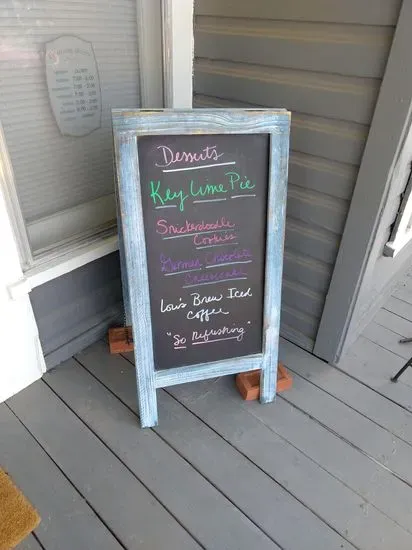 Desserts
Key Lime Pie
Snickerdoodle
Cookies
German Chocolate
Cheesecake
Lori's Brew Iced
Coffee
"So Refreshing"